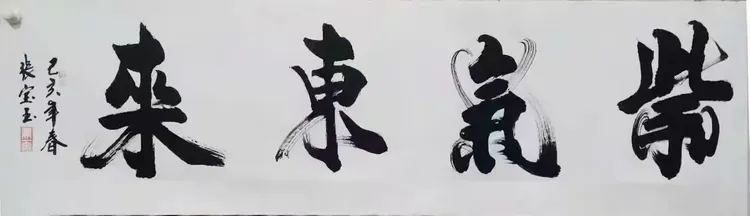 紫氣東来
己亥年春
張宝玉